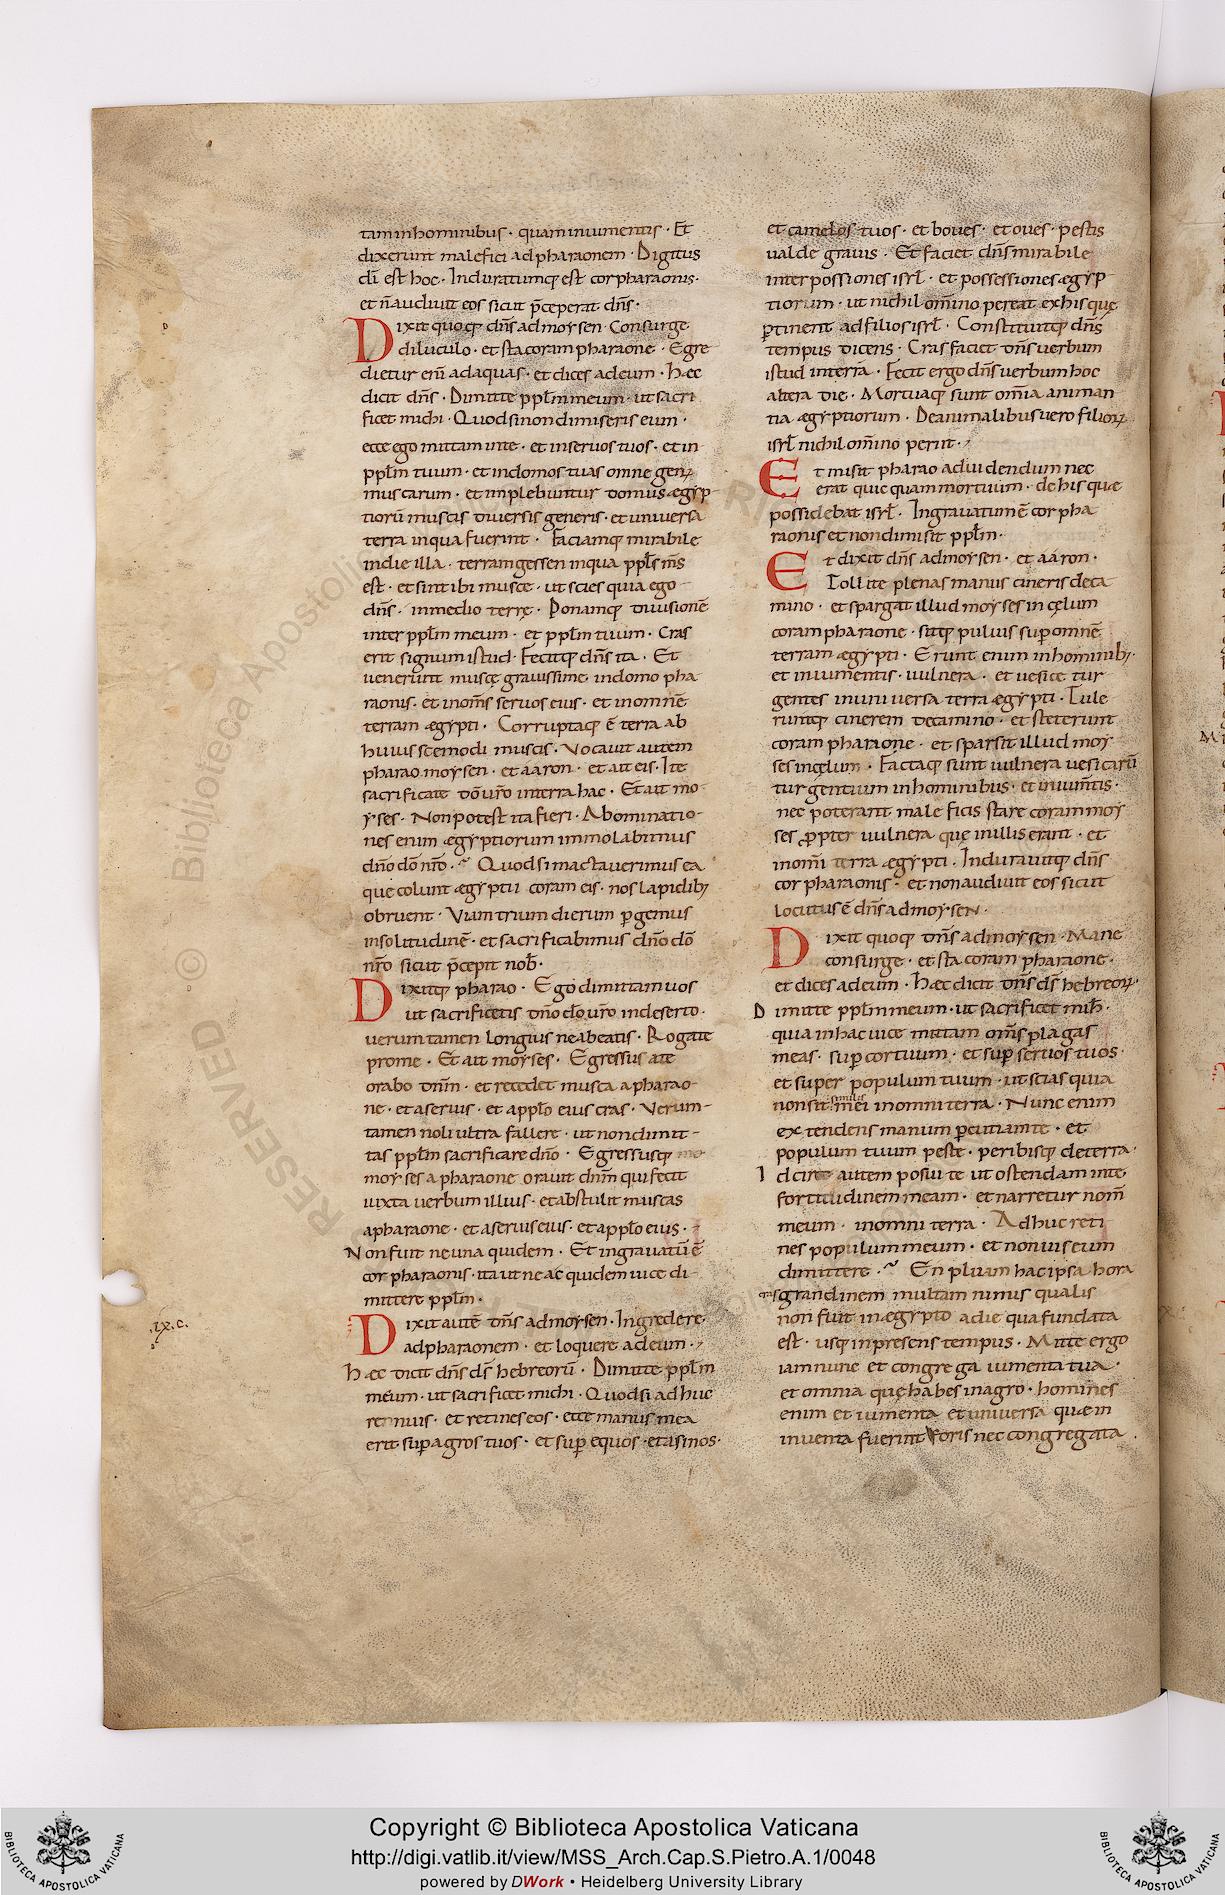 tam in hominibus · quam in iumentis · Et
dixerunt malefici ad pharaonem · Digitus
dī est hoc · Induratumq; est cor pharaonis ·
et n̄ audivit eos sicut p̄ceperat dn̄s ·
Dixit quoq; dn̄s ad moysen · Consurge
diluculo · et sta coram pharaone · Egre
dietur eni̅ ad aquas · et dices ad eum · Hæc
dicit dn̄s · Dimitte ppl̄m meum · ut sacri
ficet michi · Quod si non dimiseris eum ·
ecce ego mittam in te · et in servos tuos · et in
ppl̄m tuum · et in domos tuas omne genꝰ
muscarum · et implebuntur domus ægyp
tiorū muscis diversis generis · et universa
terra in qua fuerint · Faciamq; mirabile
in die illa · terram gessen in qua ppl̄s m̄s
est · et sint ibi musce · ut scies quia ego
dn̄s · in medio terrę · Ponamq; divisionē
inter ppl̄m meum · et ppl̄m tuum · Cras
erit signum istud · Fecitq; dn̄s ita · Et
venerunt muscę gravissime in domo pha
raonis · et in om̄s servos eius · et in omnē
terram ægypti · Corruptaq; ē terra ab
huiuscemodi muscis · Vocavit autem
pharao moysen · et aaron · et ait eis · Ite
sacrificate dō vr̄o in terra hac · Et ait mo
yses · Non potest ita fieri · Abominatio
nes enim ægyptiorum immolabimus
dn̄o dō nr̄o · Quod si mactaverimus ea
que colunt ægyptii coram eis · nos lapidib;
obruent · Viam trium dierum p̱gemus
in solitudinē · et sacrificabimus dn̄o dō
nr̄o sicut p̄cepit nob̄ ·
Dixitq; pharao · Ego dimittam vos
ut sacrificetis dn̄o dō vr̄o in deserto ·
verumtamen longius ne abeatis · Rogate
pro me · Et ait moyses · Egressus a te
orabo dn̄m · et recedet musca a pharao
ne · et a servis · et a ppl̄o eius cras · Verum-
tamen noli ultra fallere · ut non dimit-
tas ppl̄m sacrificare dn̄o · Egressusq;
moyses a pharaone oravit dn̄m qui fecit
iuxta verbum illius · et abstulit muscas
a pharaone · et a servis eius · et a ppl̄o eius ·
Non fuit ne una quidem · Et ingravatū ē
cor pharaonis · ita ut ne ac quidem vice di-
mittere ppl̄m ·
.ix.c.
Dixit autē dn̄s ad moysen · Ingredere
ad pharaonem · et loquere ad eum ·
Hæc dicit dn̄s ds̄ hebreorū · Dimitte ppl̄m
meum · ut sacrificet michi · Quod si adhuc
rennuis · et retines eos · ecce manus mea
erit sup̱ agros tuos · et sup̱ equos · et asinos ·
et camelos tuos · et boves · et oves · pestis
valde gravis · Et faciet dn̄s mirabile
inter possiones isrl̄ · et possessiones ægyp
tiorum · ut nichil om̄ino pereat ex his que
p̱tinent ad filios isrl̄ · Constituitq; dn̄s
tempus dicens · Cras faciet dn̄s verbum
istud in terra · Fecit ergo dn̄s verbum hoc
altera die · Mortuaq; sunt om̄ia animan
tia ægyptiorum · De animalibus vero filioꝝ
isrl̄ nichil om̄ino periit ·
Et misit pharao ad videndum nec
erat quicquam mortuum · de his quæ
possidebat isrl̄ · Ingravatum ē cor pha
raonis et non dimisit ppl̄m ·
Et dixit dn̄s ad moysen · et aaron ·
Tollite plenas manus cineris de ca
mino · et spargat illud moyses in cęlum
coram pharaone · sitq; pulvis sup̱ omnē
terram ægypti · Erunt enim in hominib;
et in iumentis · vulnera · et vesice tur
gentes in universa terra ægypti · Tule
runtq; cinerem de camino · et steterunt
coram pharaone · et sparsit illud moy
ses in cęlum · Factaq; sunt vulnera vesicarū
turgentium in hominibus · et in ium̄tis ·
nec poterant maleficis stare coram moy
ses p̱pter vulnera quę in illis erant · et
in om̄i terra ægypti · Induravitq; dn̄s
cor pharaonis · et non audivit eos sicut
locutus ē dn̄s ad moysen ·
Dixit quoq; dn̄s ad moysen · Mane
consurge · et sta coram pharaone ·
et dices ad eum · Hæc dicit dn̄s ds̄ hebreoꝝ ·
Dimitte ppl̄m meum · ut sacrificet mih̄ ·
quia in hac vice mittam om̄s plagas
meas · sup̱ cor tuum · et sup̱ servos tuos ·
et super populum tuum · ut scias quia
non sit similis mei in omni terra · Nunc enim
extendens manum p̱cutiam te · et
populum tuum peste · peribisq; de terra ·
Idcirco autem posui te ut ostendam in te
fortitudinem meam · et narretur nom̄
meum · in omni terra · Adhuc reti
nes populum meum · et non vis eum
dimittere · En pluam hac ipsa hora
cras grandinem multam nimis qualis
non fuit in ægypto a die qua fundata
est · usq; in presens tempus · Mitte ergo
iam nunc et congrega iumenta tua ·
et omnia quę habes in agro · homines
enim et iumenta et universa quæ in
inventa fuerint foris nec congregata ·
Copyright © Biblioteca Apostolica Vaticana
http://digi.vatlib.it/view/MSS_Arch.Cap.S.Pietro.A.1/0048
powered by DWork • Heidelberg University Library
BIBLIOTECA APOSTOLICA VATICANA
BIBLIOTECA APOSTOLICA VATICANA